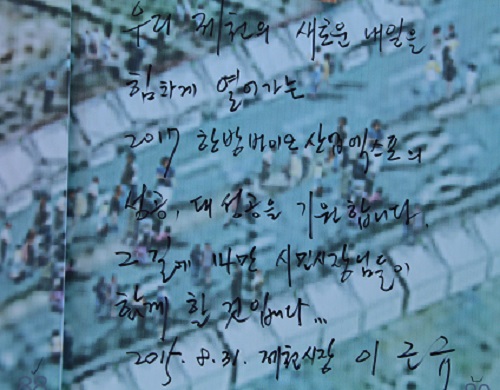 우리 제천의 새로운 내일을
힘차게 열어가는
2017 한방바이오산업엑스포의
성공, 대성공을 기원합니다.
그 길에 14만 시민시장님들이
함께 할 것입니다...
2015. 8. 31. 제천시장 이근규